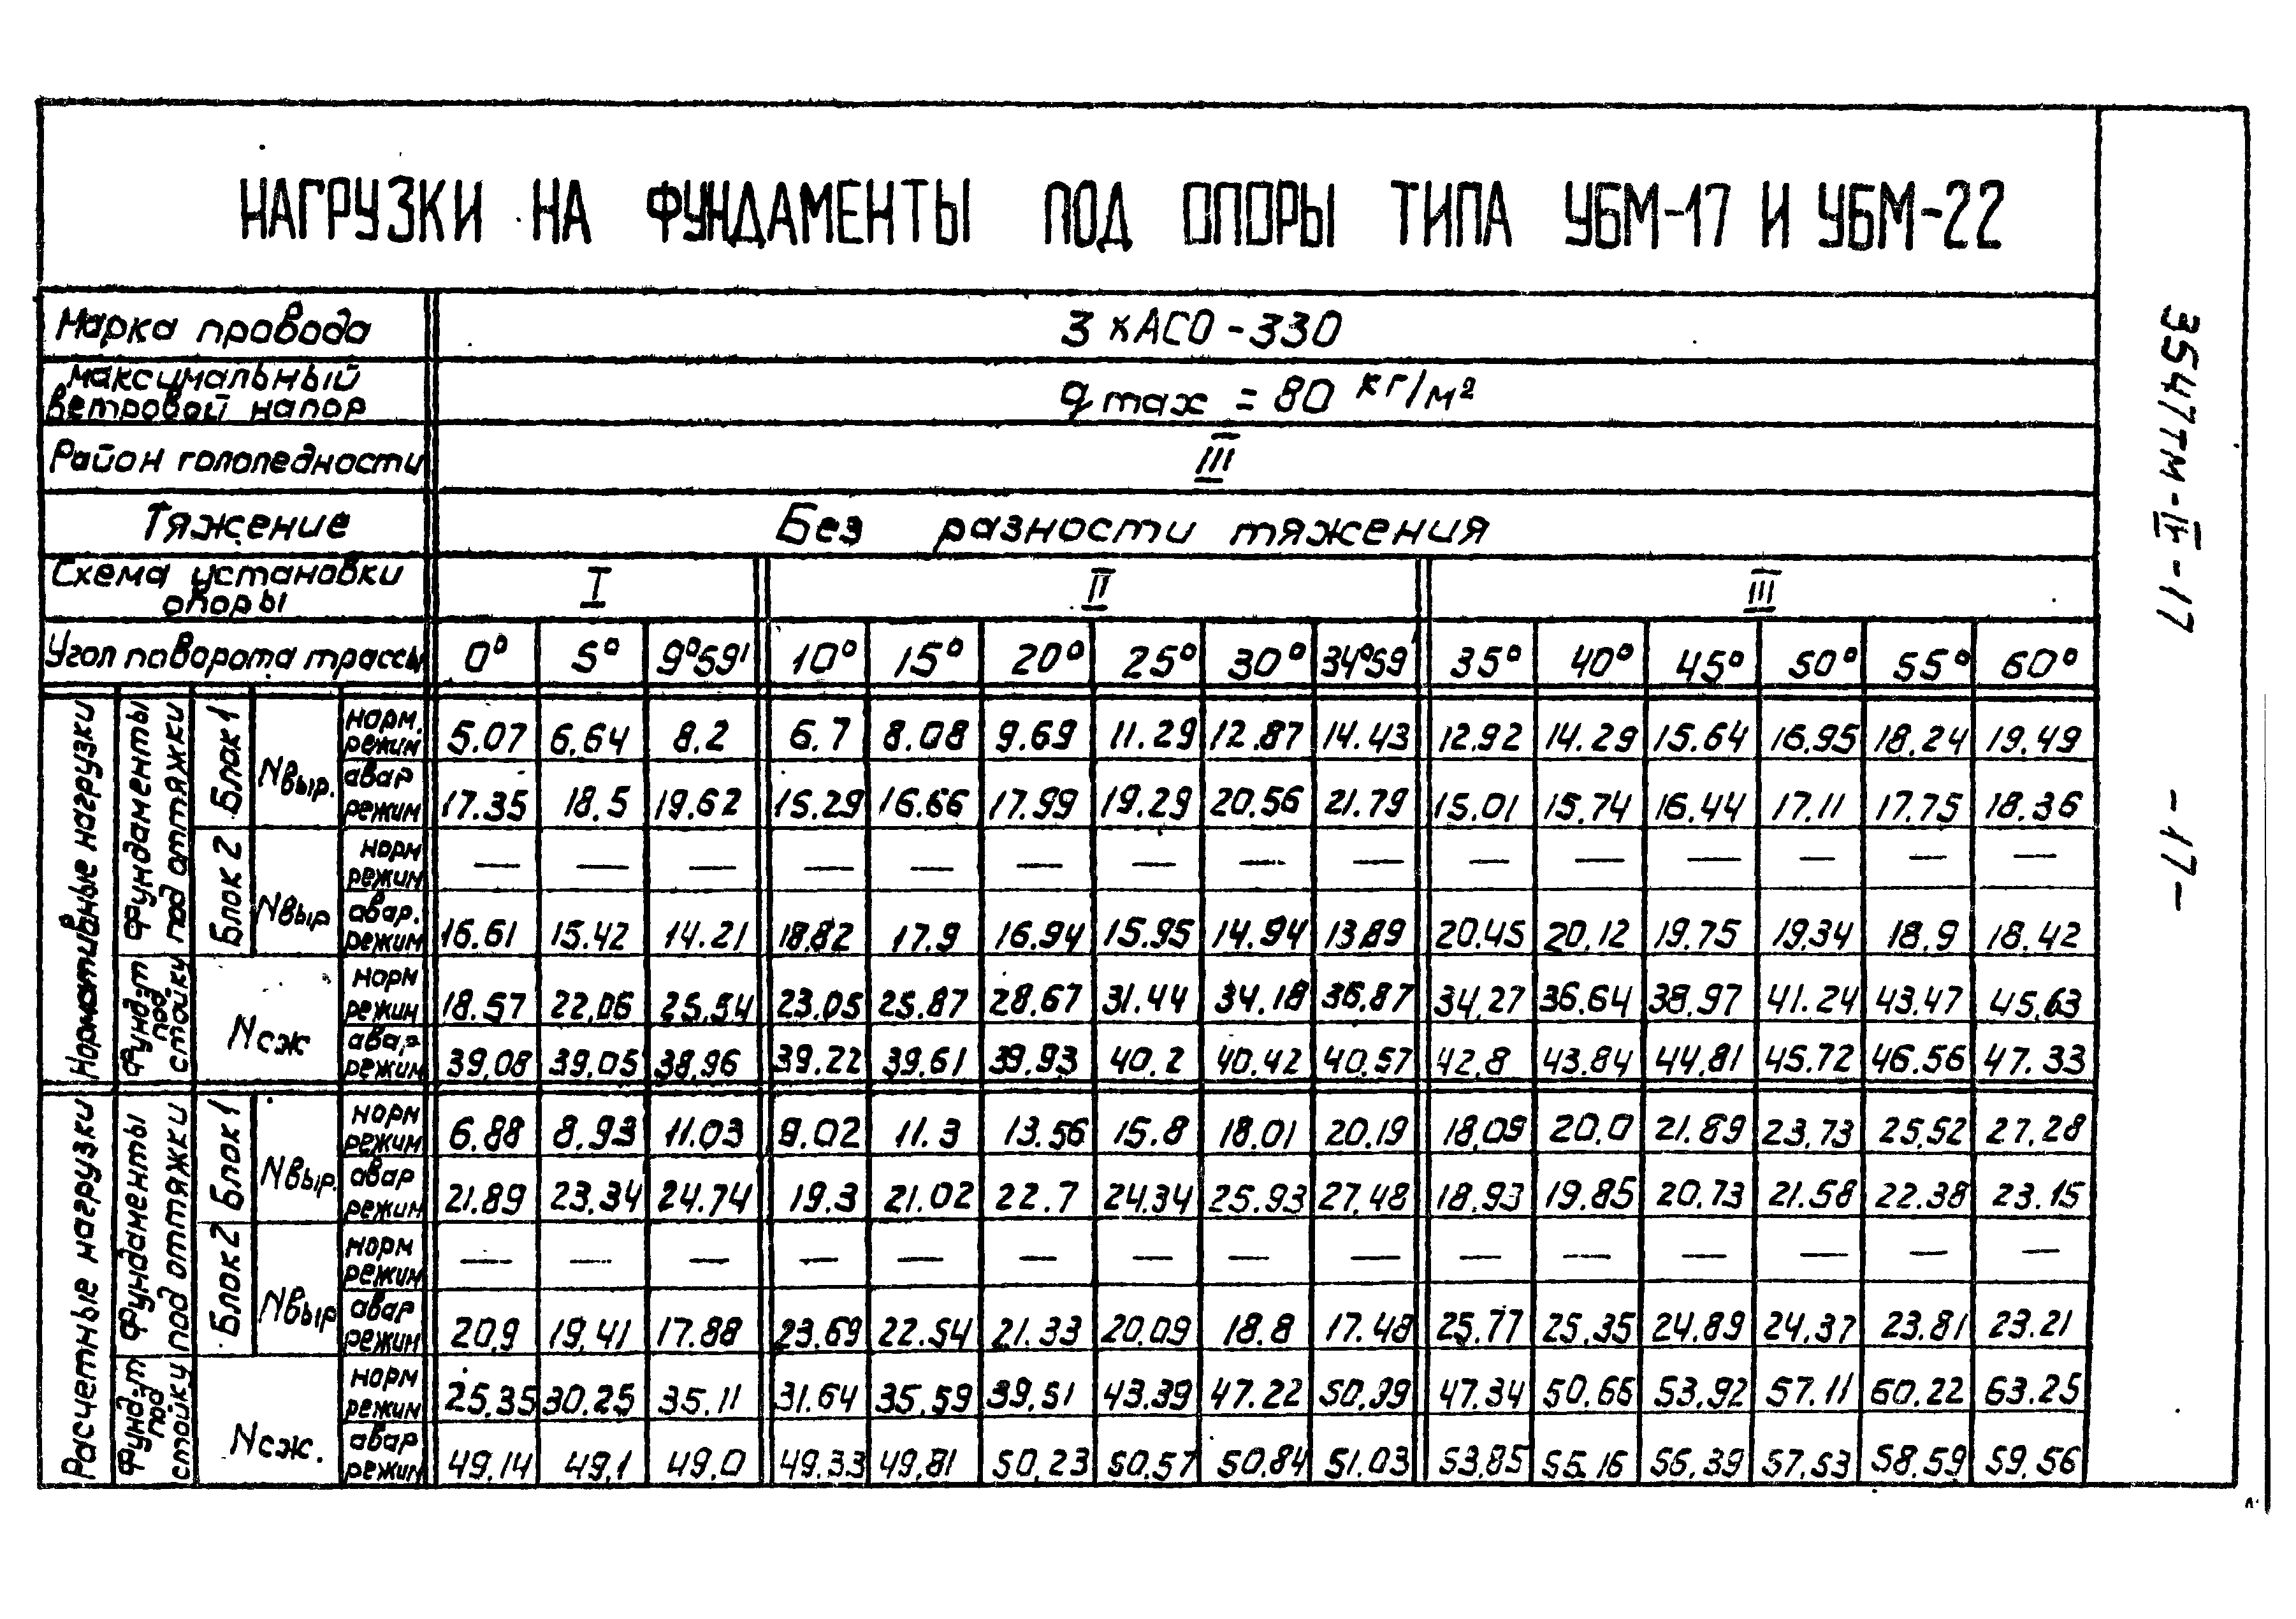 НАГРУЗКИ НА ФУНДАМЕНТЫ ПОД ОПОРЫ ТИПА УБМ-17 И УБМ-22
Марка провода 3 хАСО-330
Максимальный
ветровой напор q max = 80 кг/м²
Район гололедности III
Тяжение Без разности тяжения
Схема установки
опоры I II III
Угол поворота трассы 0° 5° 9°59' 10° 15° 20° 25° 30° 34°59 35° 40° 45° 50° 55° 60°
Нормативные нагрузки
Фундаменты
под оттяжки
Блок 1
Nвыр.
норм.
режим 5.07 6.64 8.2 6.7 8.08 9.69 11.29 12.87 14.43 12.92 14.29 15.64 16.95 18.24 19.49
авар
режим 17.35 18.5 19.62 15.29 16.66 17.99 19.29 20.56 21.79 15.01 15.74 16.44 17.11 17.75 18.36
Блок 2
Nвыр
норм
режим — — — — — — — — — — — — — — —
авар.
режим 16.61 15.42 14.21 18.82 17.9 16.94 15.95 14.94 13.89 20.45 20.12 19.75 19.34 18.9 18.42
Фунд-т
под
стойку
Nсж
норм
режим 18.57 22.06 25.54 23.05 25.87 28.67 31.44 34.18 36.87 34.27 36.64 38.97 41.24 43.47 45.63
авар
режим 39.08 39.05 38.96 39.22 39.61 39.93 40.2 40.42 40.57 42.8 43.84 44.81 45.72 46.56 47.33
Расчетные нагрузки
Фундаменты
под оттяжки
Блок 1
Nвыр.
норм
режим 6.88 8.93 11.03 9.02 11.3 13.56 15.8 18.01 20.19 18.09 20.0 21.89 23.73 25.52 27.28
авар
режим 21.89 23.34 24.74 19.3 21.02 22.7 24.34 25.93 27.48 18.93 19.85 20.73 21.58 22.38 23.15
Блок 2
Nвыр
норм
режим — — — — — — — — — — — — — — —
авар
режим 20.9 19.41 17.88 23.69 22.54 21.33 20.09 18.8 17.48 25.77 25.35 24.89 24.37 23.81 23.21
Фунд-т
под
стойку
Nсж.
норм
режим 25.35 30.25 35.11 31.64 35.59 39.51 43.39 47.22 50.99 47.34 50.66 53.92 57.11 60.22 63.25
авар
режим 49.14 49.1 49.0 49.33 49.81 50.23 50.57 50.84 51.03 53.85 55.16 56.39 57.53 58.59 59.56
-17-